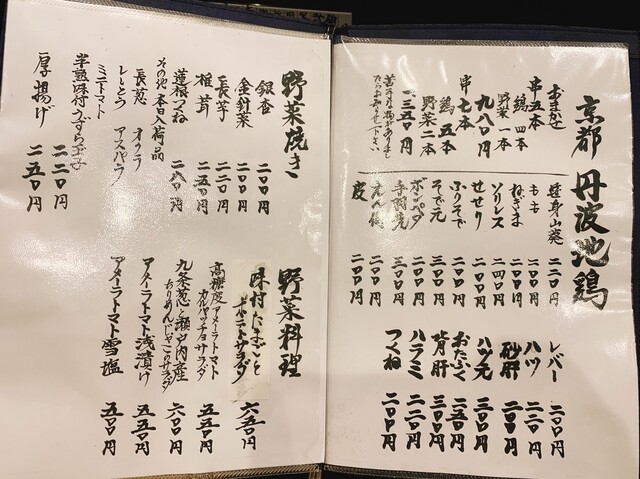 京都 丹波地鶏
おまかせ
串五本
鶏 四本
野菜 一本
九八〇円
串 七本
鶏 五本
野菜 二本
一三五〇円
もも 二〇〇円
ねぎま 二〇〇円
ソリレス 二四〇円
せせり 二〇〇円
ふりそで 二〇〇円
そで元 二〇〇円
ボンペタ 三〇〇円
手羽先 三〇〇円
皮 二〇〇円
レバー 二〇〇円
ハツ 二二〇円
砂肝 二〇〇円
ハツ元 三〇〇円
おたふく 二五〇円
背肝 三〇〇円
ハラミ 二二〇円
つくね 二〇〇円
野菜焼き
銀杏 二〇〇円
金針菜 二〇〇円
長芋 二二〇円
椎茸 二五〇円
蓮根つくね 二八〇円
その他 本日入荷品
長葱 オクラ
ししとう アスパラ
ミニトマト
半熟味付うずら玉子 二二〇円
厚揚げ 二五〇円
野菜料理
味村たまごと
サラダ 六五〇円
高糖度アメーラトマト
カルパッチョサラダ 五五〇円
九条葱と瀬戸内産
ちりめんじゃこのサラダ 六〇〇円
アメーラトマト浅漬け 五五〇円
アメーラトマト雪塩 五五〇円